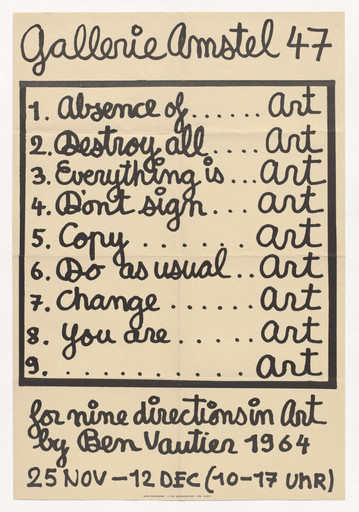 Gallerie Amstel 47
1. Absence of...... Art
2. Destroy all.... Art
3. Everything is ... Art
4. Don't sign.... Art
5. Copy....... Art
6. Do as usual.. Art
7. Change...... Art
8. You are..... Art
9. .......... Art
for nine directions in Art
by Ben Vautier 1964
25 NOV – 12 DEC (10-17 UHR)